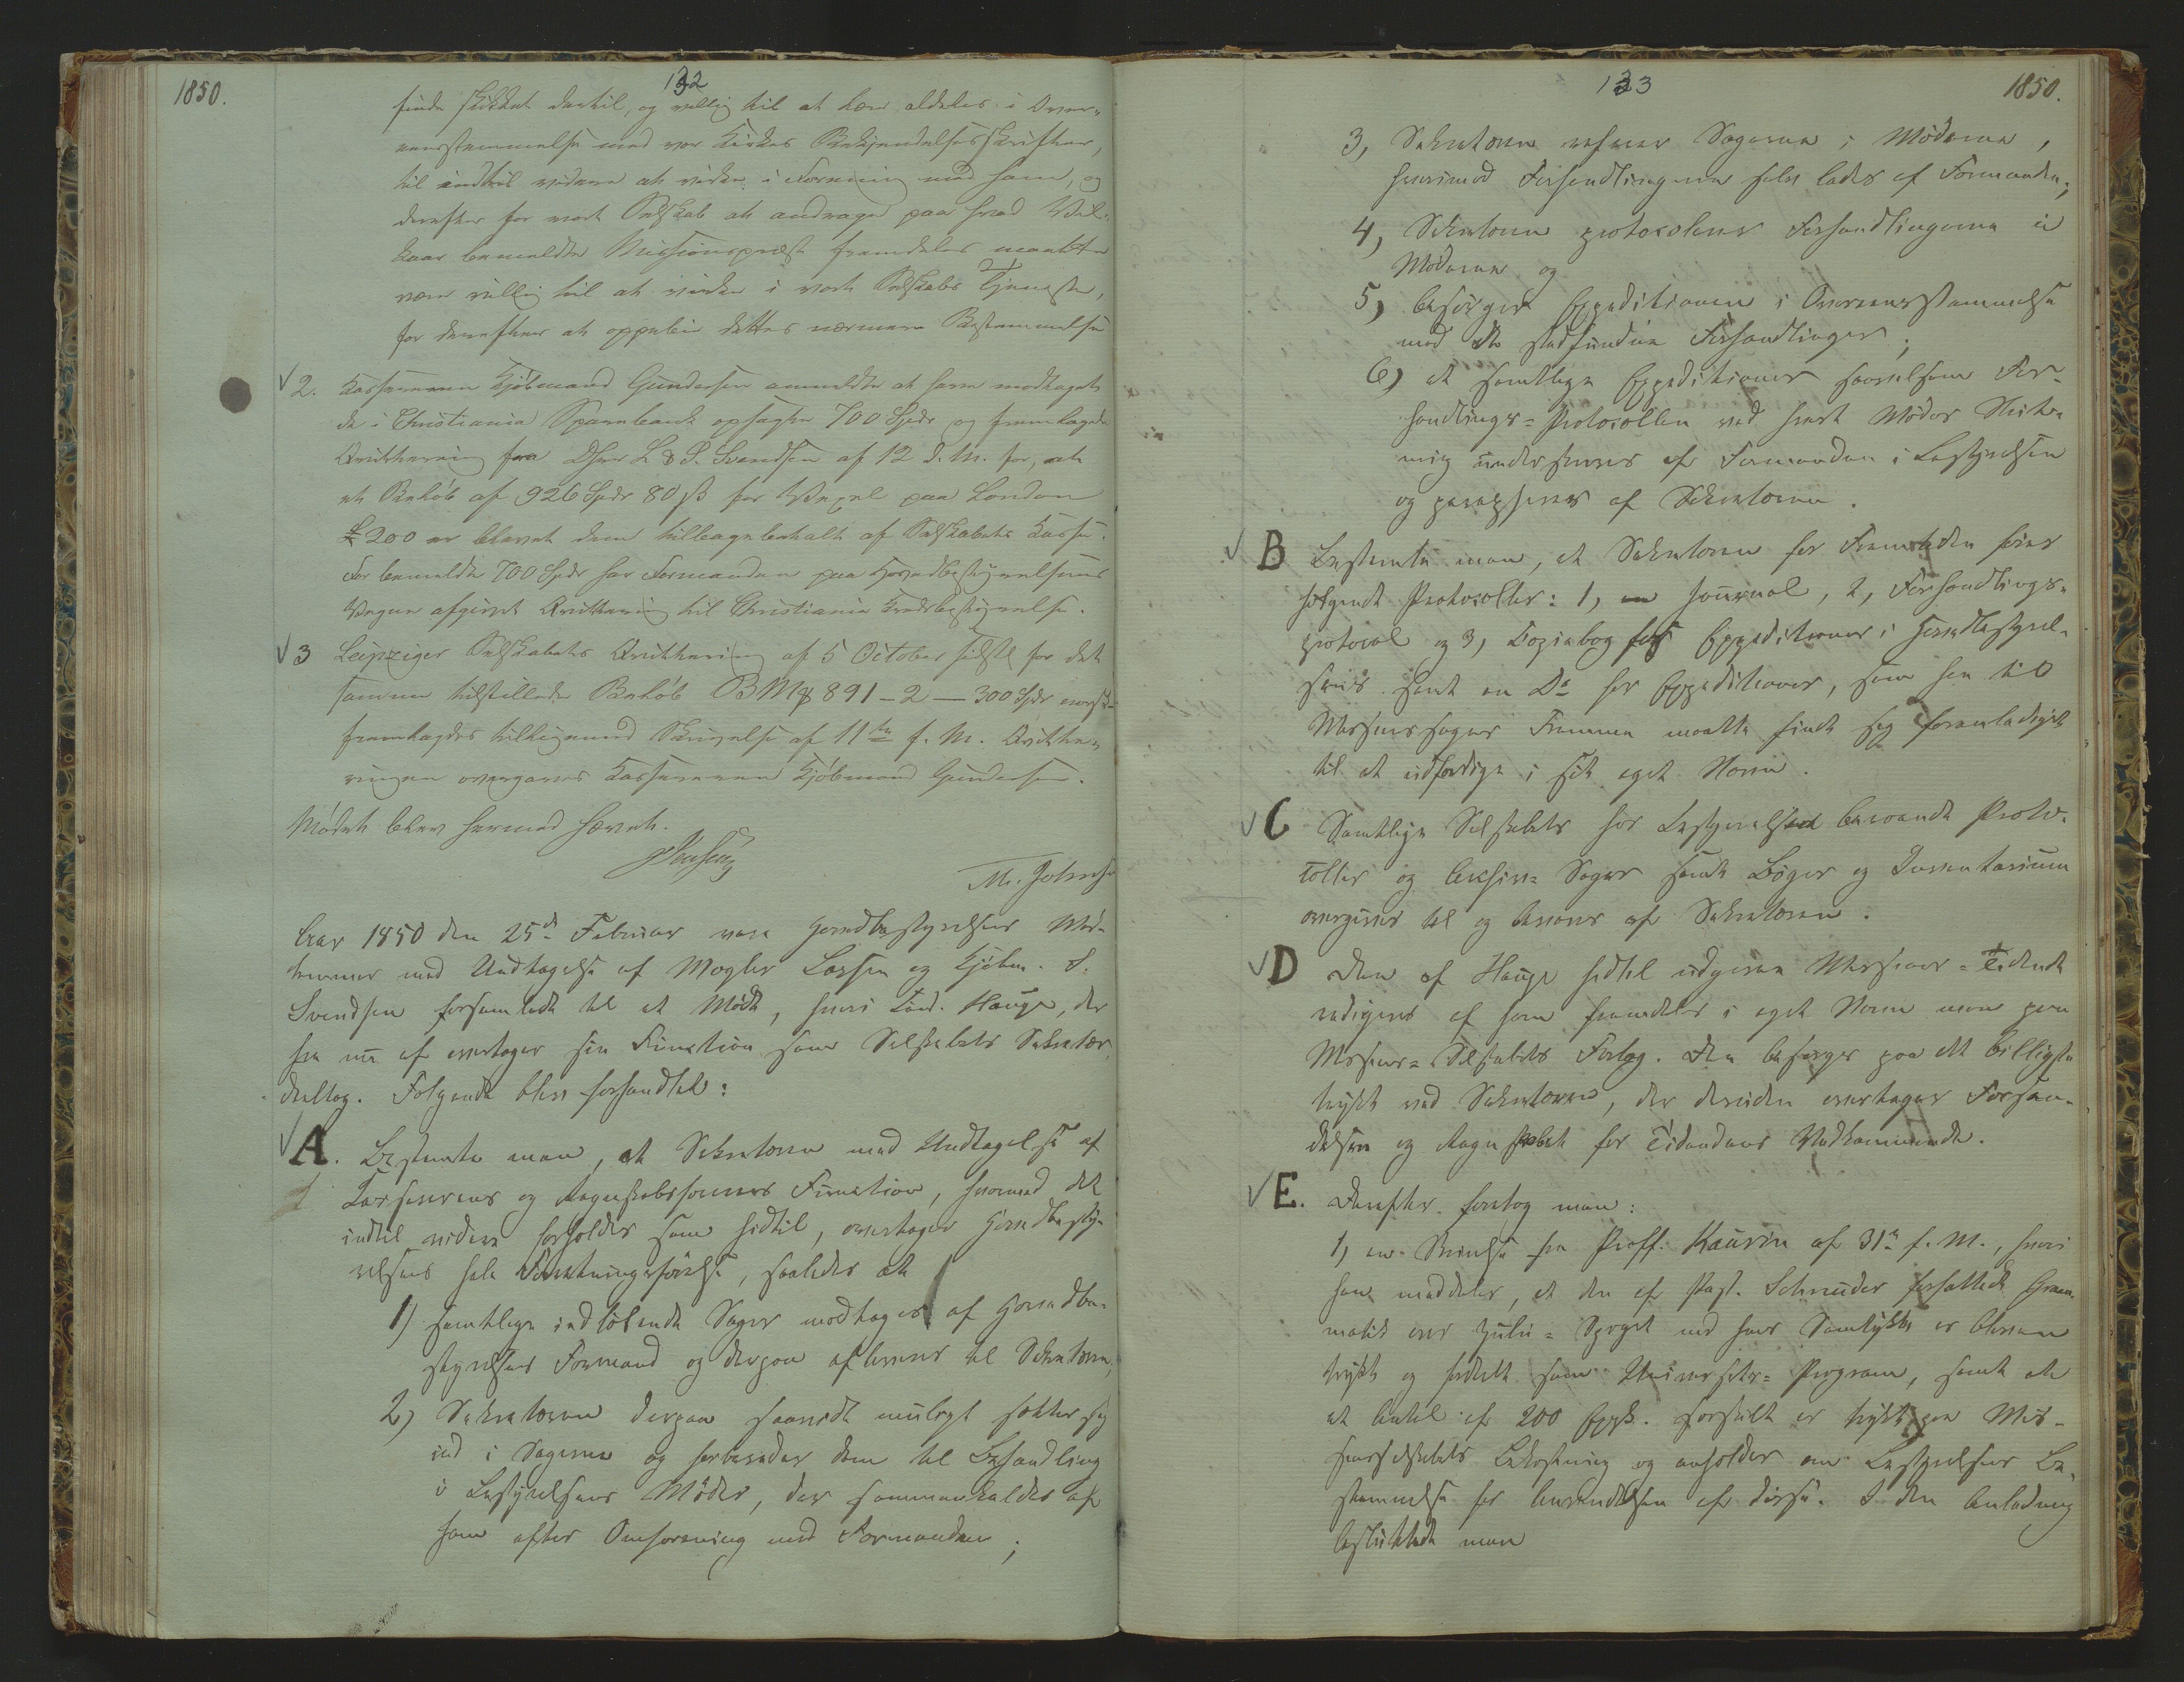 1850.
132
finde skikket dertil, og villig til at lære aldeles i Over-
eensstemmelse med vor Kirkes Bekjendelsesskrifter,
til indtil videre at virke i Forening med ham, og
derefter for vort Selskab at andrage paa hvad Vil-
kaar bemeldte Missionspræst fremdeles maatte
være villig til at virke i vort Selskabs Tjeneste,
for derefter at oppebie dettes nærmere Bestemmelse
√ 2. Kassereren Kjöbmand Gundersen anmeldte at have modtaget
de i Christiania Sparebank opsagte 700 Spdr og fremlagde
Qvittering fra DHrr L & S. Svendsen af 12 d. M. for, at
et Beløb af 926 Spdr 80 ß for Vexel paa London
£ 200 er blevet dem tilbagebetalt af Selskabets Kasse.
For bemeldte 700 Spdr har Formanden paa Hovedbestyrelsens
Vegne afgivet Qvittering til Christiania Kredsbestyrelse.
√ 3 Leipziger Selskabets Qvittering af 5 October sidstl. for det
samme tilstillede Beløb BMk 891 - 2 — 300 Spdr norsk
fremlagdes tilligemed Skrivelse af 11te f. M. Qvitte-
ringen overgaves Kassereren Kjöbmand Gundersen.
Mödet blev hermed hævet.
M. Johns
Aar 1850 den 25de Februar vare Hovedbestyrelsens Med-
lemmer med Undtagelse af Mægler Lassen og Kjöbm. S.
Svendsen forsamlede til et Möde, hvori Cand. Hauge, der
fra nu af overtager sin Function som Selskabets Sekretær,
deeltog. Følgende blev forhandlet:
√ A. Bestemte man, at Sekretæren med Undtagelse af
Kassererens og Regnskabsførerens Function, hvormed det
indtil videre forholdes som hidtil, overtager Hovedbesty-
relsens hele Forretningsførelse, saaledes at
1) samtlige indløbende Sager modtages af Hovedbe-
styrelsens Formand og derpaa afleveres til Sekretæren,
2) Sekretæren derpaa saavidt muligt sætter sig
ind i Sagerne og forbereder dem til Behandling
i Bestyrelsens Möder, der sammenkaldes af
ham efter Omforening med Formanden;
133
1850.
3, Sekretæren refererer Sagerne i Möderne,
hvorimod Forhandlingerne selv ledes af Formanden;
4, Sekretæren protocolerer Forhandlingerne i
Möderne og
5) besörger Expeditionen i Overeensstemmelse
med de stedfundne Forhandlinger;
6) at samtlige Expeditioner saavelsom For-
handlings-Protocollen ved hvert Mödes Slut-
ning underskrives af Formanden i Bestyrelsen
og parapheres af Sekretæren.
√ B Bestemte man, at Sekretæren for Fremtiden förer
fölgende Protocoller: 1, en Journal, 2, Forhandlings-
protocol og 3, Copiebog for Expeditioner i Hovedbestyrel-
sens samt en Do for Expeditioner, som han til
Missionssagens Fremme maatte finde sig foranlediget
til at udfærdige i sit eget Navn.
√ C Samtlige Selskabets hos Bestyrelsen beroende Proto-
coller og Archivs-Sager samt Böger og Inventarium
overgives til og bevares af Sekretæren.
√ D Den af Hauge hidtil udgivne Missions-Tidende
redigeres af ham fremdeles i eget Navn men paa
Missions-Selskabets Forlag. Den besörges paa det billigste
trykt ved Sekretæren, der desuden overtager Forsen-
delsen og Regnskabet for Tidendens Vedkommende.
√ E. Derefter foretog man:
1, en Skrivelse fra Proff. Kaurin af 31te f. M., hvori
han meddeler, at den af Past. Schreuder forfattede Gram-
matik over Zulu-Sproget med hans Samtykke er bleven
trykt og uddeelt som Universitets-Program, samt at
et Antal af 200 Expl. særskilt er trykt paa Mis-
sionsselskabets Bekostning og anholder om Bestyrelsens Be-
stemmelse for Anvendelsen af disse. I den Anledning
besluttede man